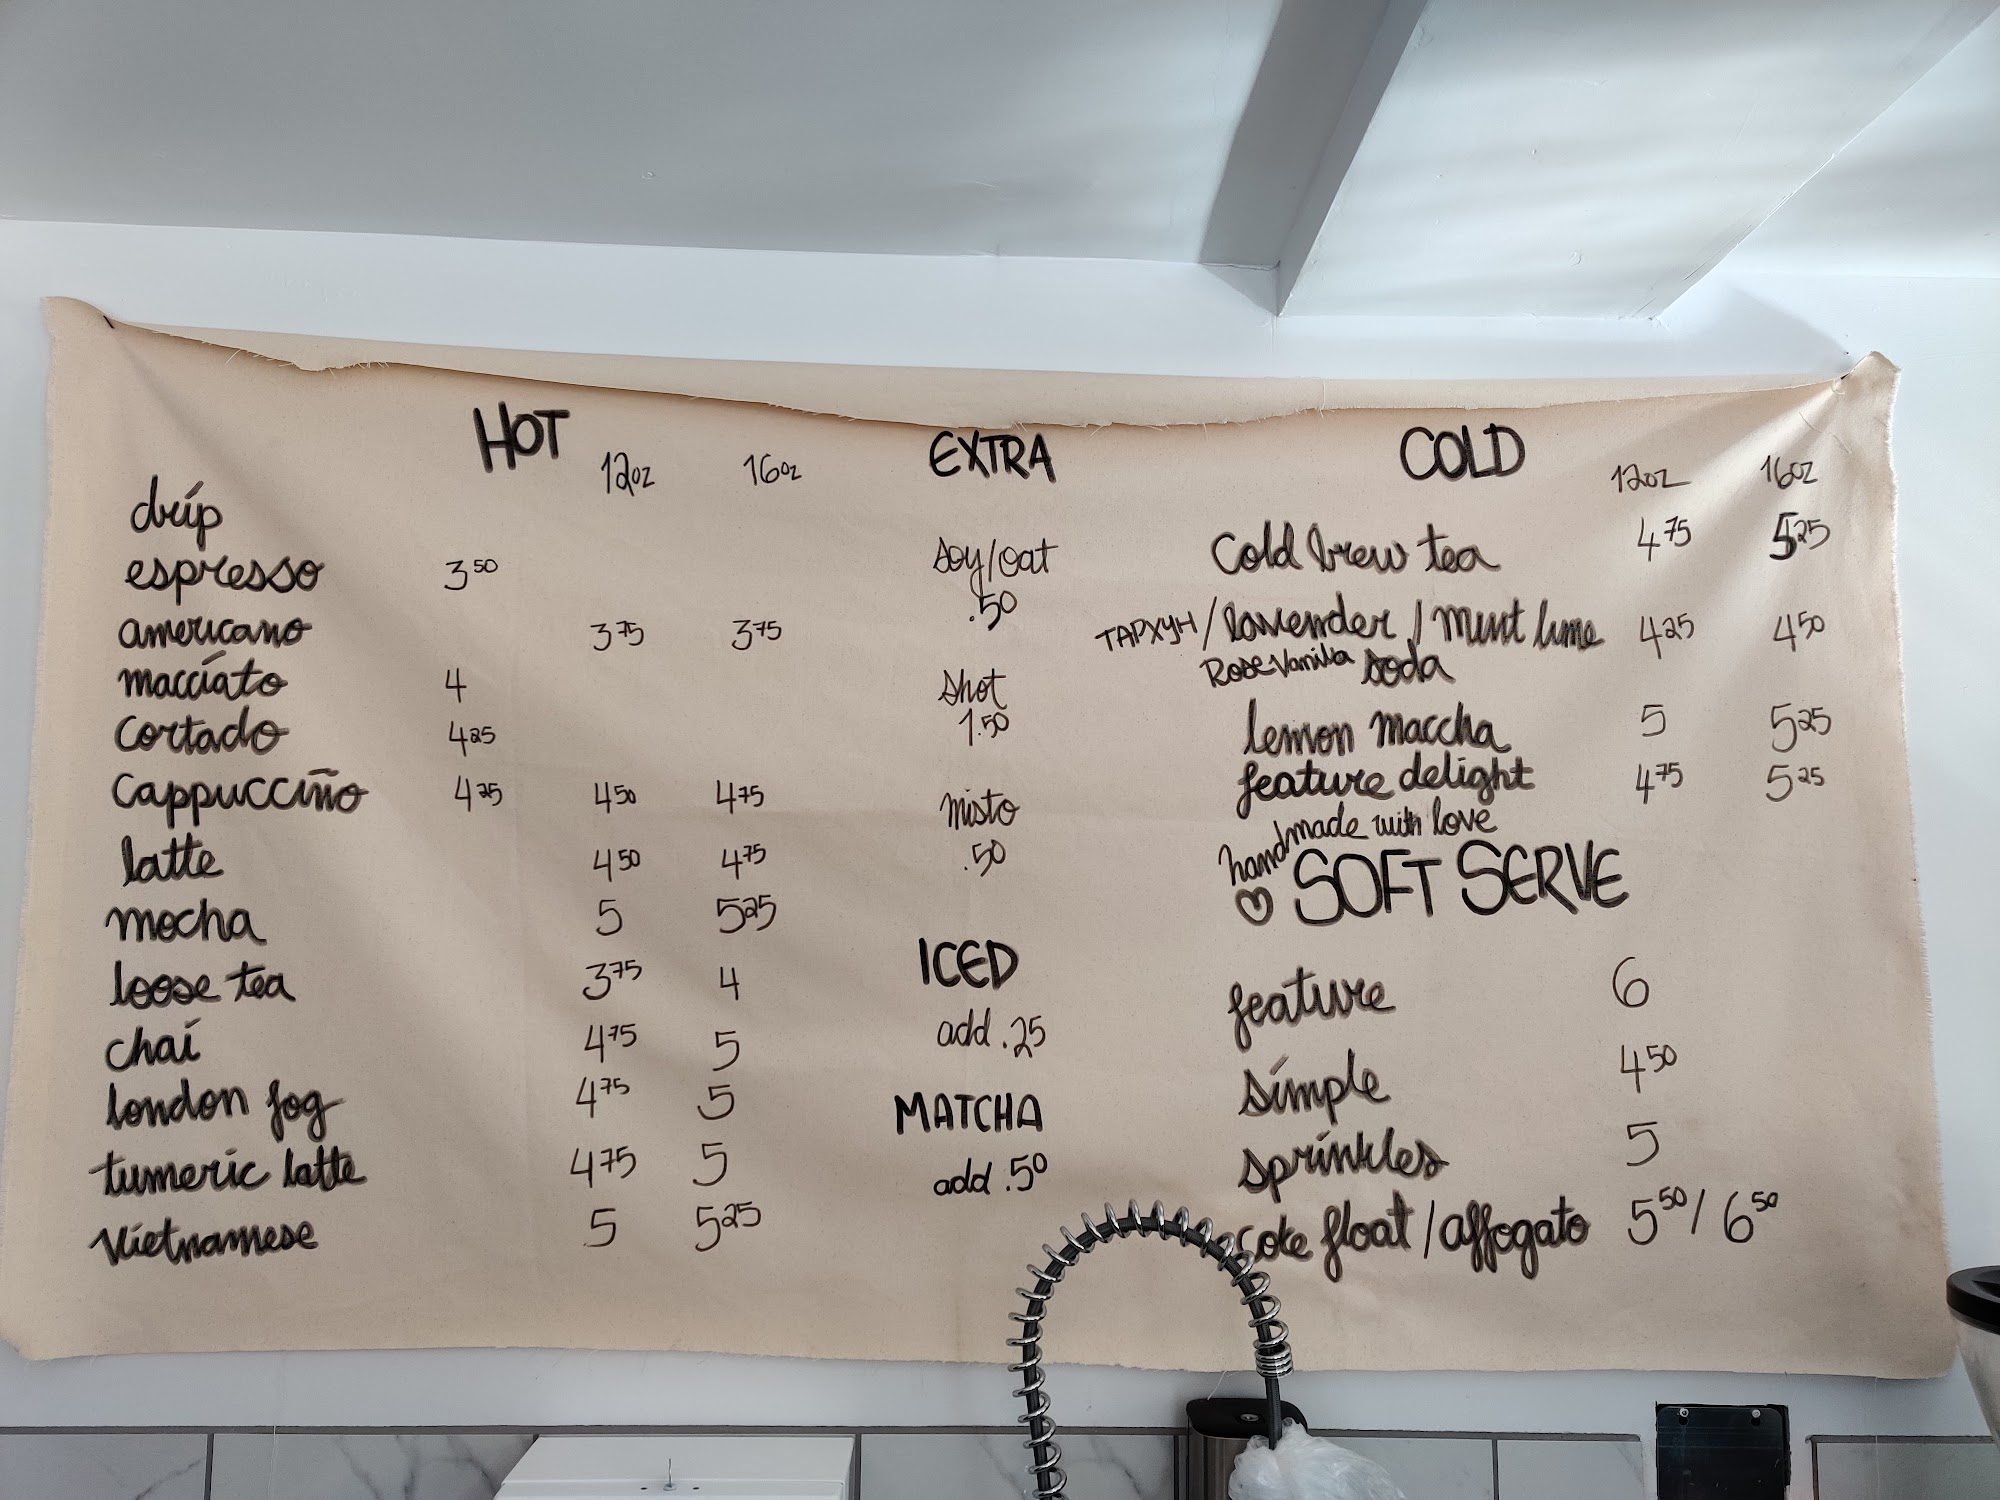 HOT
12oz 16oz
drip
espresso 3 50
americano 3 75 3 75
macciato 4
cortado 4 25
cappucciño 4 25 4 50 4 75
latte 4 50 4 75
mocha 5 5 25
loose tea 3 75 4
chai 4 75 5
london fog 4 75 5
tumeric latte 4 75 5
vietnamese 5 5 25
EXTRA
soy/oat
.50
shot
1.50
misto
.50
ICED
add .25
MATCHA
add .50
COLD
12oz 16oz
cold brew tea 4 75 5 25
ТАРХУН/lavender/mint lime 4 25 4 50
Rose Vanilla soda
lemon maccha 5 5 25
feature delight 4 75 5 25
handmade with love
♡ SOFT SERVE
feature 6
simple 4 50
sprinkles 5
coke float/affogato 5 50/6 50